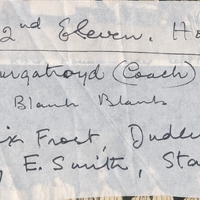 2nd Eleven. H
urgatroyd (Coach)
Blank Blank
ix Frost, Dudle
, E. Smith, Sta